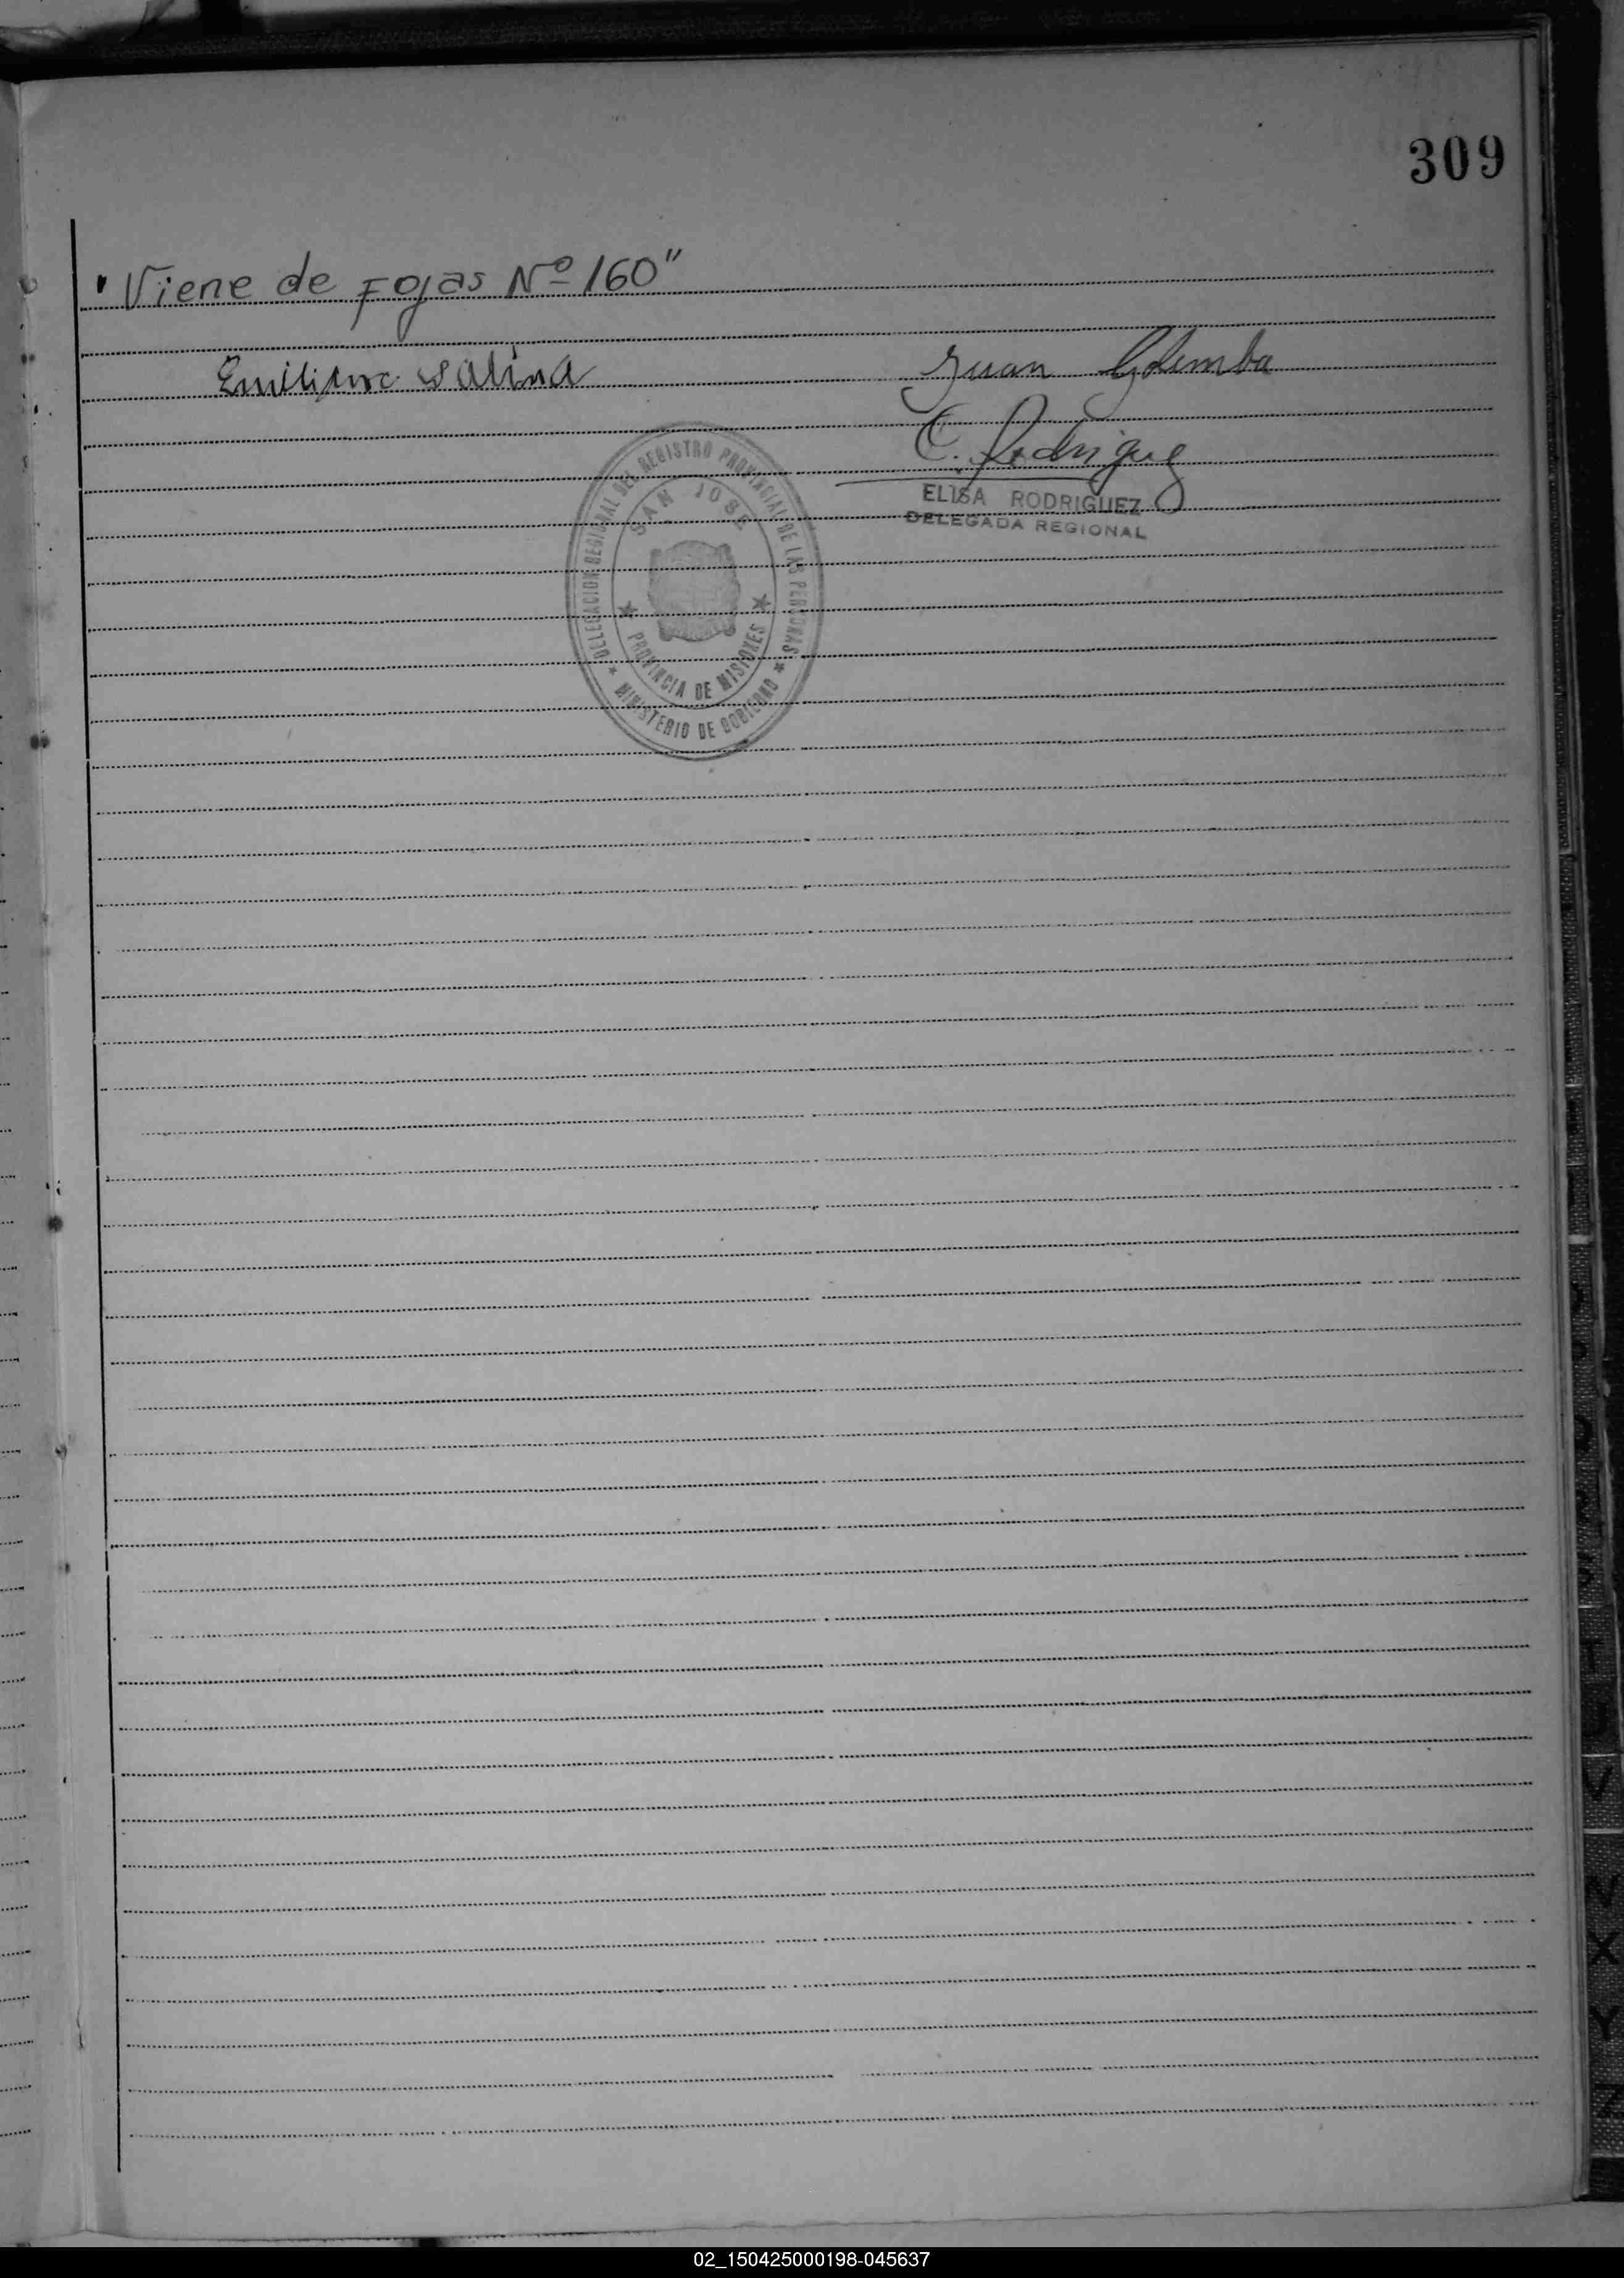 309
"Viene de Fojas Nº 160"
Emiliano Salina
Juan Golemba
E. Rodriguez
ELISA RODRIGUEZ
DELEGADA REGIONAL
DELEGACION REGIONAL DEL REGISTRO PROVINCIAL DE LAS PERSONAS
SAN JOSE
PROVINCIA DE MISIONES
MINISTERIO DE GOBIERNO
V
X
Y
Z
02_150425000198-045637